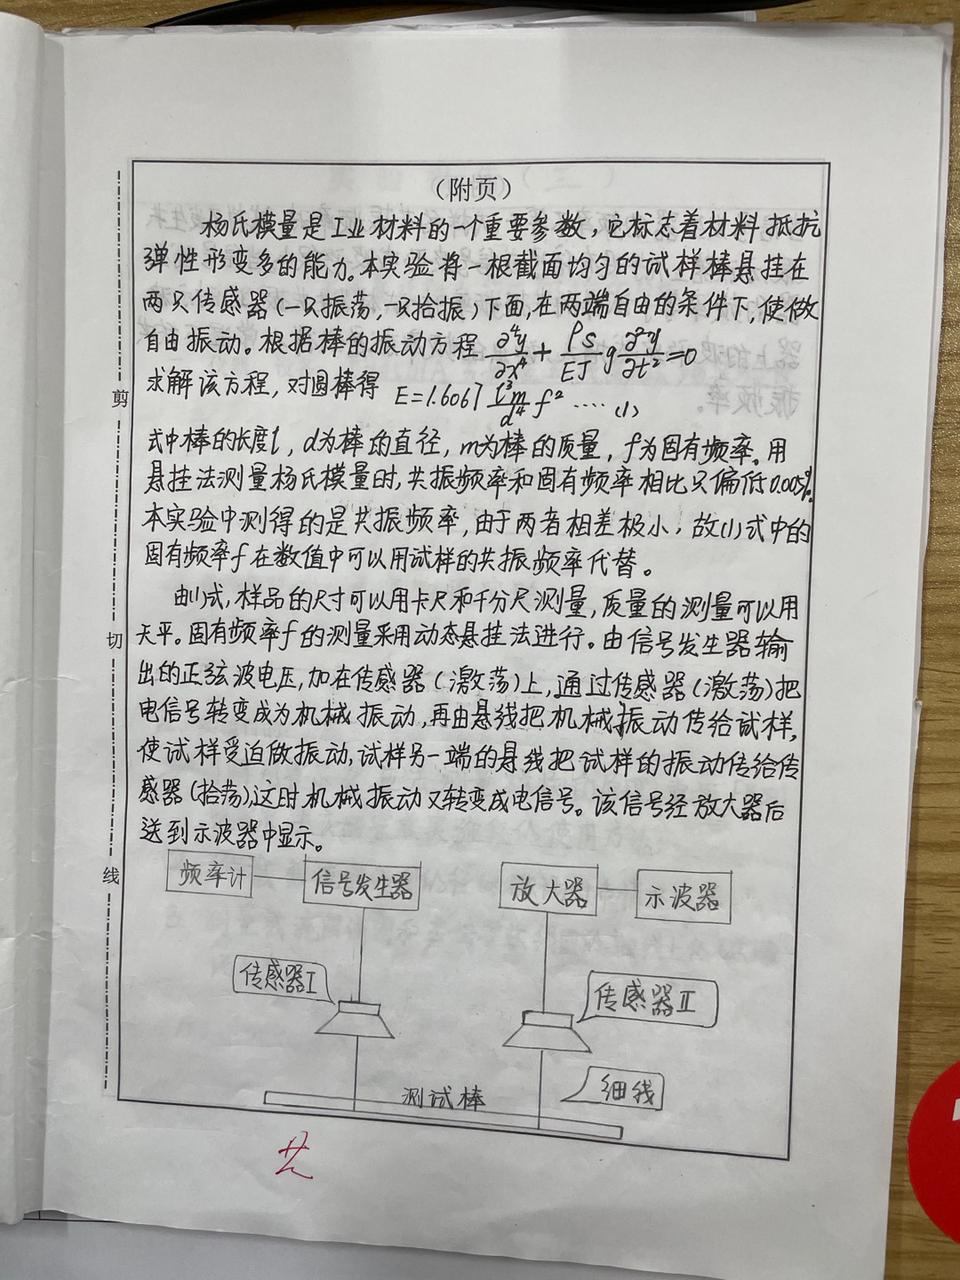 （附页）
杨氏模量是工业材料的一个重要参数，它标志着材料抵抗
弹性形变多的能力。本实验将一根截面均匀的试样棒悬挂在
两只传感器（一只振荡，一只拾振）下面，在两端自由的条件下，使做
自由振动。根据棒的振动方程 ∂⁴y/∂x⁴ + ρS/EJ g ∂²y/∂t² = 0
求解该方程，对圆棒得 E=1.6067 l³m/d⁴ f² ····(1)
式中棒的长度l，d为棒的直径，m为棒的质量，f为固有频率。用
悬挂法测量杨氏模量时，共振频率和固有频率相比只偏低0.005%。
本实验中测得的是共振频率，由于两者相差极小，故(1)式中的
固有频率f在数值中可以用试样的共振频率代替。
由(1)式，样品的尺寸可以用卡尺和千分尺测量，质量的测量可以用
天平。固有频率f的测量采用动态悬挂法进行。由信号发生器输
出的正弦波电压，加在传感器（激荡）上，通过传感器（激荡）把
电信号转变成为机械振动，再由悬线把机械振动传给试样，
使试样受迫做振动，试样另一端的悬线把试样的振动传给传
感器（拾荡），这时机械振动又转变成电信号。该信号经放大器后
送到示波器中显示。
频率计
信号发生器
放大器
示波器
传感器Ⅰ
传感器Ⅱ
细线
测试棒
剪
切
线